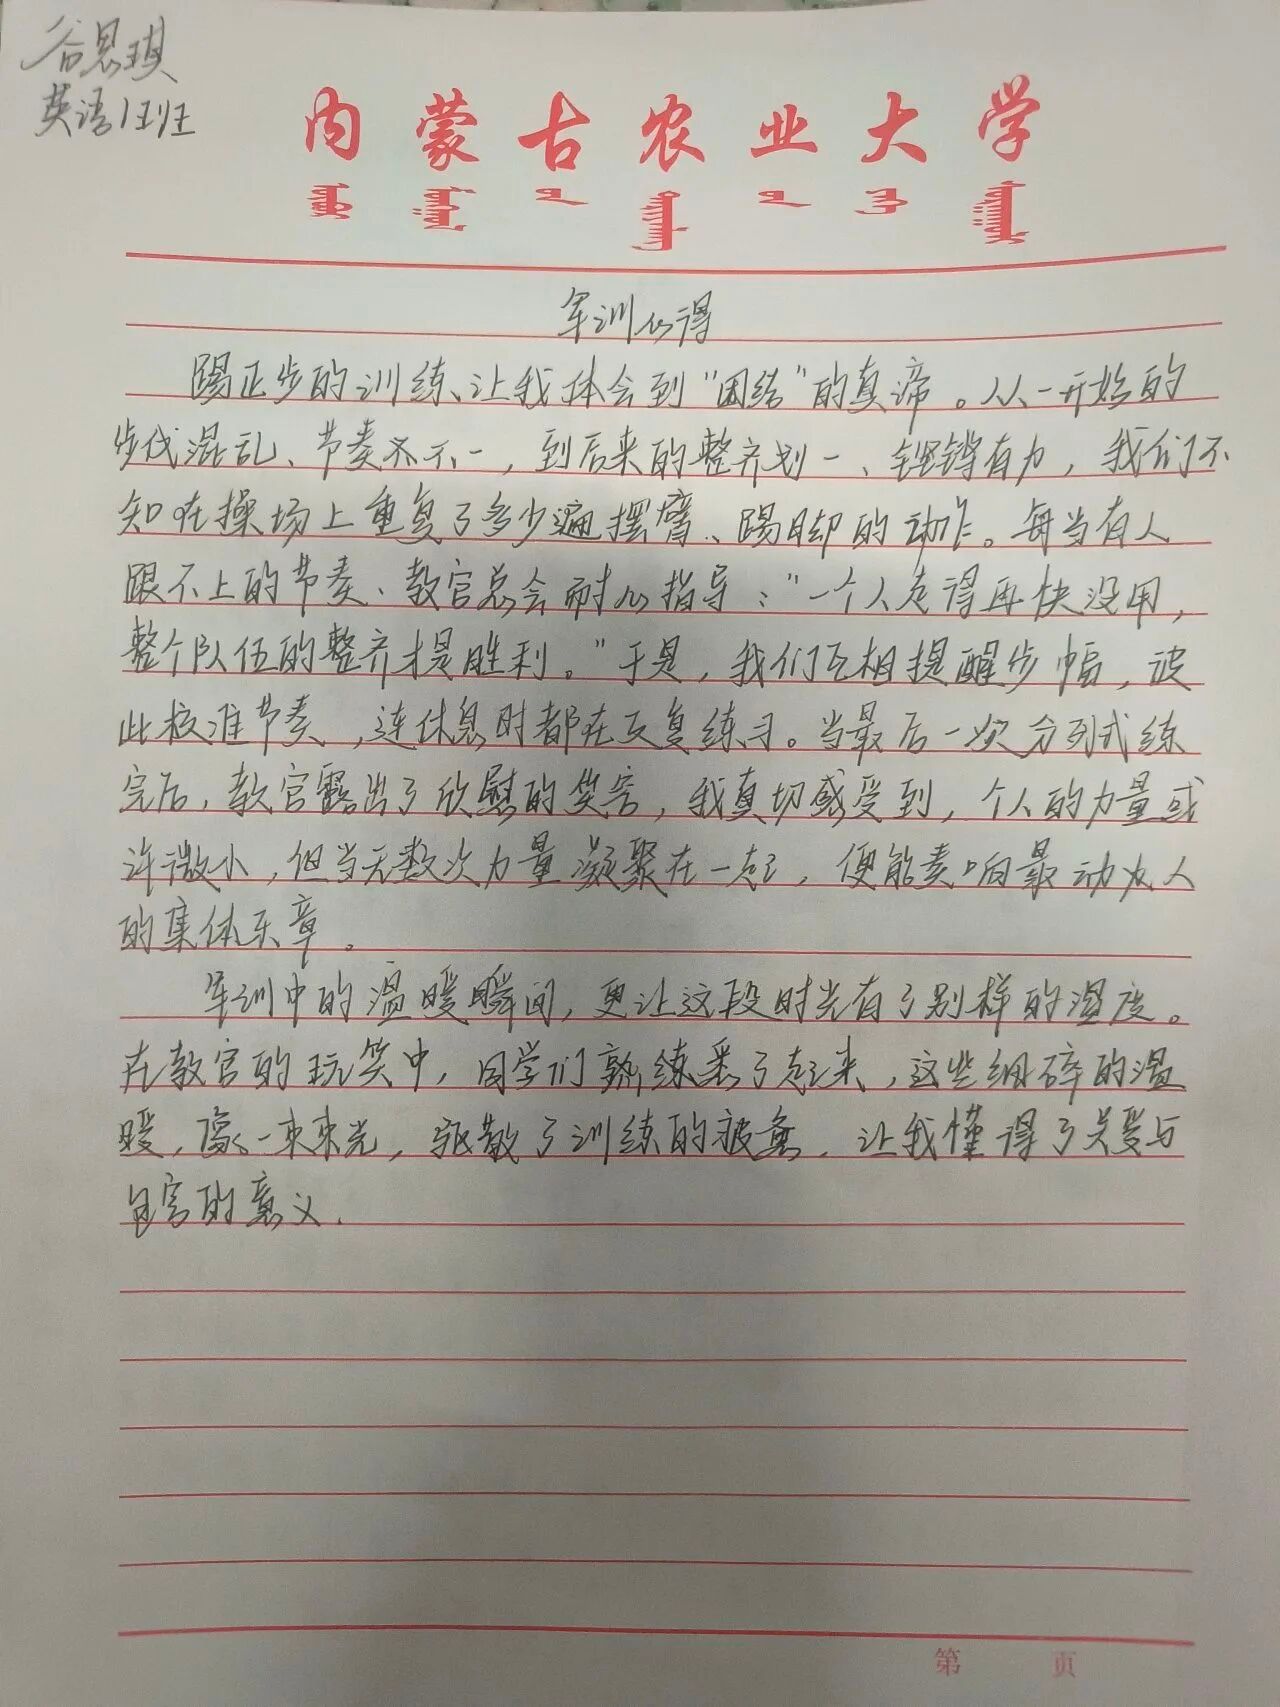 谷思琪
英语1班
内蒙古农业大学
军训心得
踢正步的训练、让我体会到"团结"的真谛。从一开始的
步伐混乱、节奏不一，到后来的整齐划一、铿锵有力，我们不
知在操场上重复了多少遍摆臂、踢脚的动作。每当有人
跟不上的节奏、教官总会耐心指导："一个人走得再快没用，
整个队伍的整齐才是胜利。"于是，我们互相提醒步幅，彼
此校准节奏，连休息时都在反复练习。当最后一次分列式练
完后，教官露出了欣慰的笑容，我真切感受到，个人的力量或
许微小，但当无数次力量凝聚在一起，便能奏响最动人
的集体乐章。
军训中的温暖瞬间，更让这段时光有了别样的温度。
在教官的玩笑中，同学们熟练悉了起来，这些细碎的温
暖，像一束束光，驱散了训练的疲惫，让我懂得了关爱与
包容的意义.
第 页